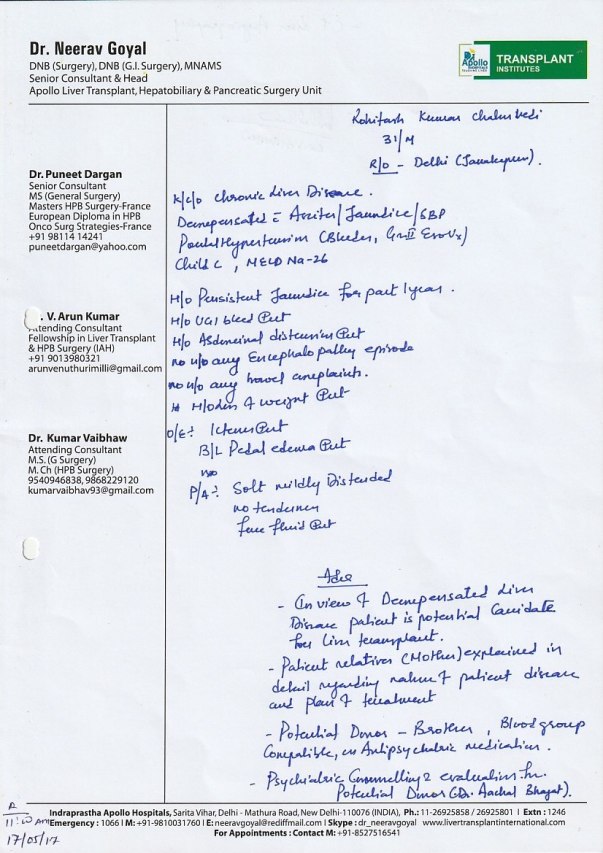 Dr. Neerav Goyal
DNB (Surgery), DNB (G.I. Surgery), MNAMS
Senior Consultant & Head
Apollo Liver Transplant, Hepatobiliary & Pancreatic Surgery Unit
Apollo
HOSPITALS
TRANSPLANT
INSTITUTES
Rohitash Kumar Chaturvedi
31/M
R/O - Delhi (Janakpuri).
Dr. Puneet Dargan
Senior Consultant
MS (General Surgery)
Masters HPB Surgery-France
European Diploma in HPB
Onco Surg Strategies-France
+91 98114 14241
puneetdargan@yahoo.com
. V. Arun Kumar
Attending Consultant
Fellowship in Liver Transplant
& HPB Surgery (IAH)
+91 9013980321
arunvenuthurimilli@gmail.com
Dr. Kumar Vaibhaw
Attending Consultant
M.S. (G Surgery)
M. Ch (HPB Surgery)
9540946838, 9868229120
kumarvaibhav93@gmail.com
K/C/O Chronic Liver Disease.
Decompensated c̄ Ascites/Jaundice/SBP
Portal Hypertension (Bleeder, Gr II EsoVx)
Child C, MELD Na-26
H/O Persistent Jaundice for past 1 year.
H/O UGI bleed Put
H/O Abdominal distension Put
no H/O any Encephalopathy episode
no H/O any bowel complaints.
H/O loss of weight Put
O/E:- Icterus Put
B/L Pedal edema Put
P/A:- Soft mildly Distended
no tenderness
free fluid Put
Adv
- In view of Decompensated Liver
Disease patient is potential Candidate
for Liver transplant.
- Patient relatives (Mother) explained in
detail regarding nature of patient disease
and plan of treatment
- Potential Donor - Brother, Blood group
Compatible, on Antipsychotic medication.
- Psychiatric Counselling & evaluation for
Potential Donor (Dr. Aachal Bhagat).
11:50 AM
17/05/17
Indraprastha Apollo Hospitals, Sarita Vihar, Delhi - Mathura Road, New Delhi-110076 (INDIA), Ph.: 11-26925858 / 26925801 I Extn : 1246
Emergency : 1066 I M: +91-9810031760 I E: neeravgoyal@rediffmail.com I Skype : dr_neeravgoyal www.livertransplantinternational.com
For Appointments : Contact M: +91-8527516541